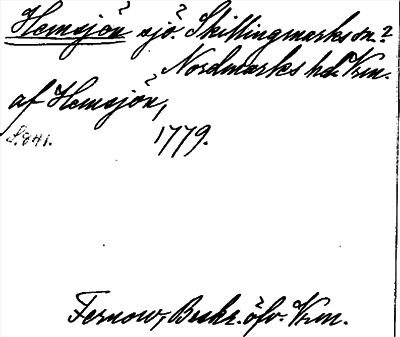 Hemsjön sjö. Skillingmarks sn.
Nordmarks hd. Vrm.
af Hemsjön,
S. 841. 1779.
Fernow, Beskr. öfv. Vrm.